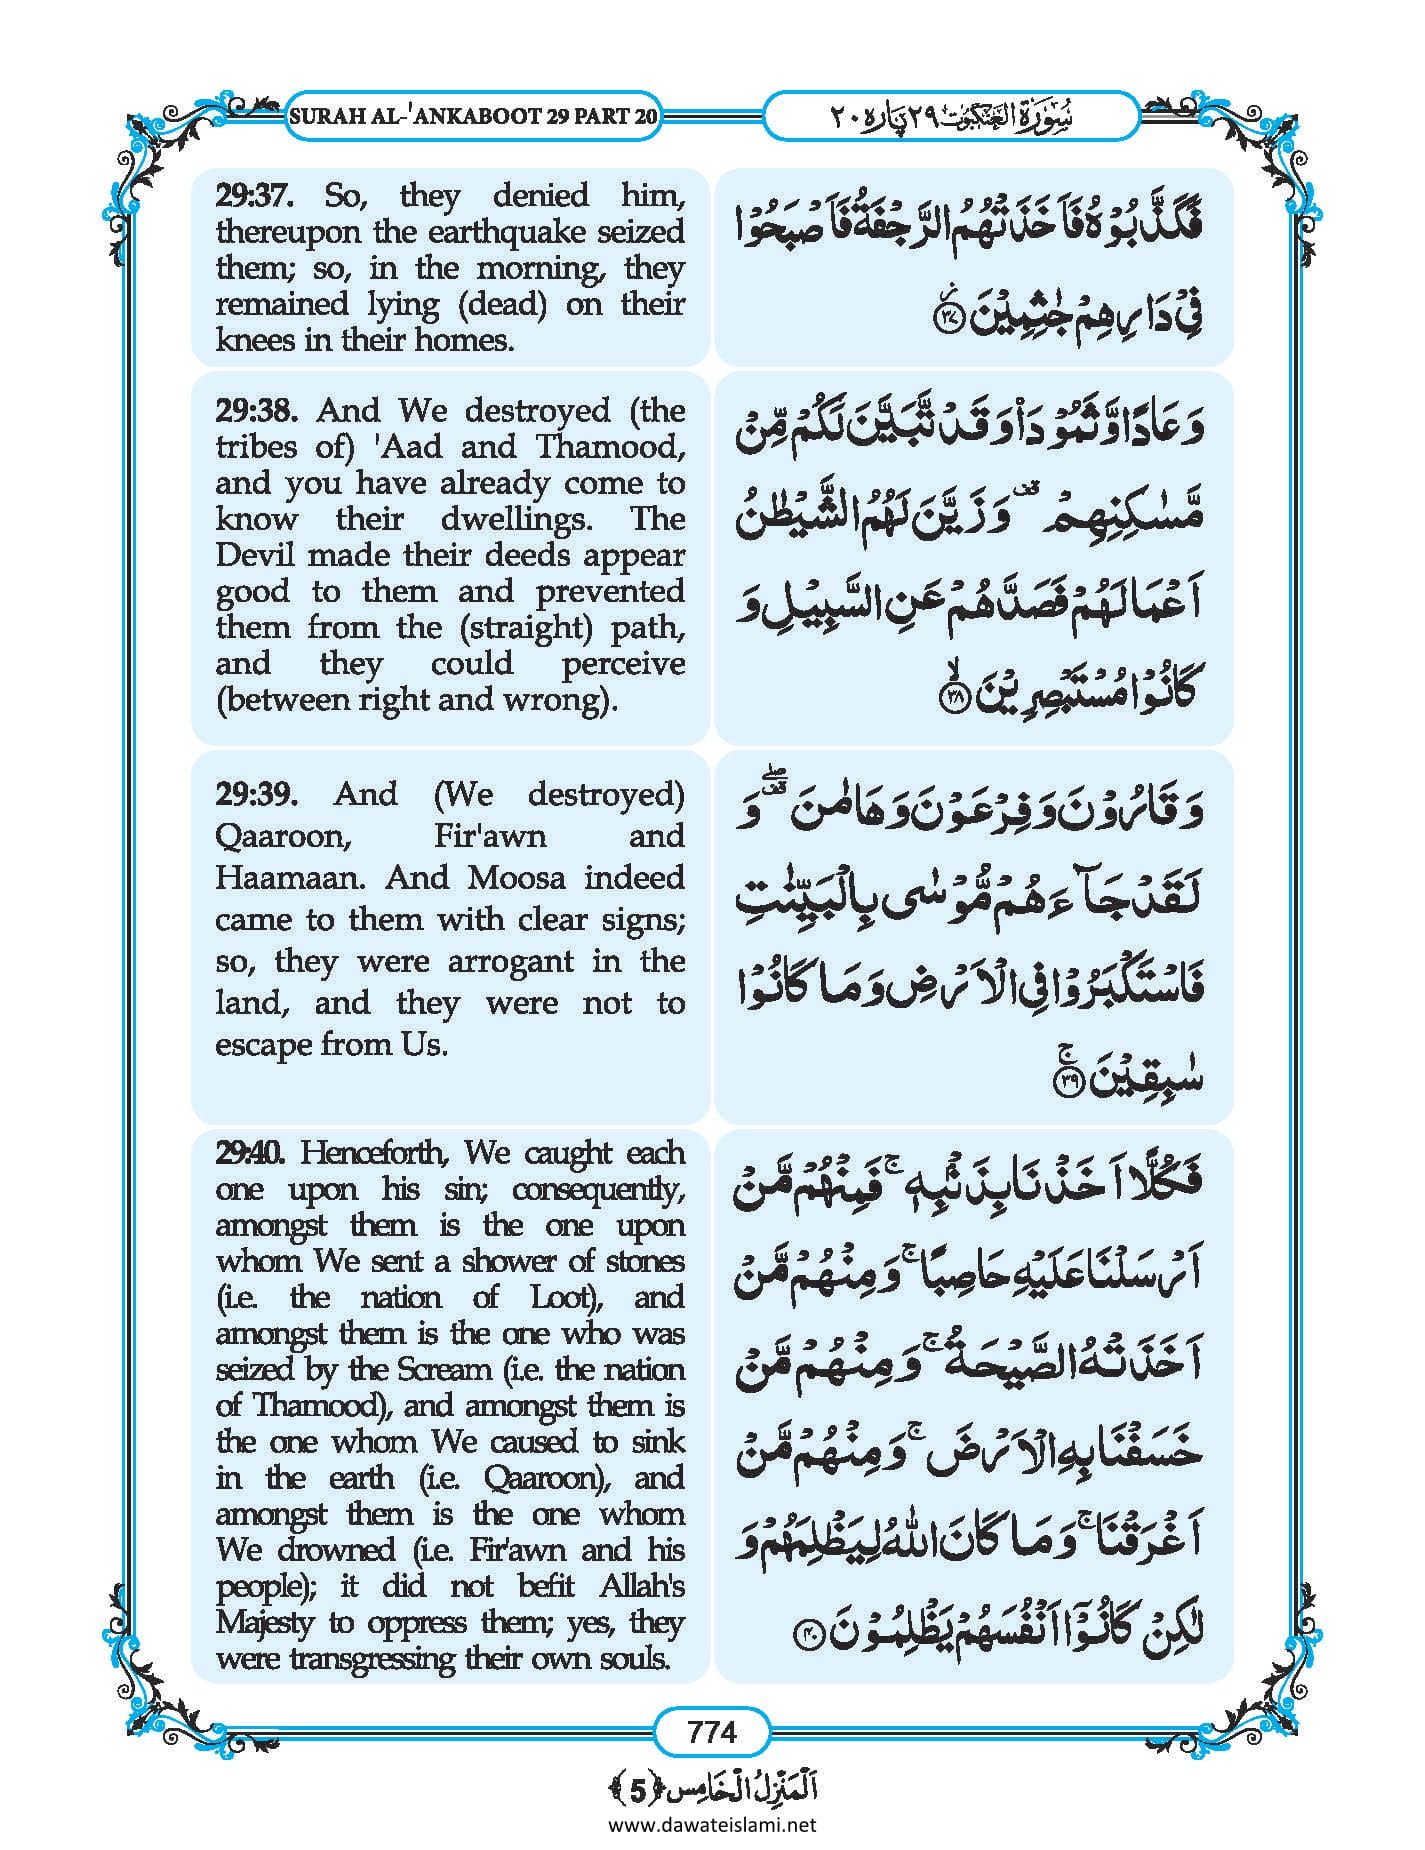 SURAH AL-'ANKABOOT 29 PART 20
سُوْرَةُ الْعَنْكَبُوْت ٢٩ پَارہ ٢٠
29:37. So, they denied him,
thereupon the earthquake seized
them; so, in the morning, they
remained lying (dead) on their
knees in their homes.
فَكَذَّبُوْهُ فَاَخَذَتْهُمُ الرَّجْفَةُ فَاَصْبَحُوْا
فِیْ دَارِهِمْ جٰثِمِیْنَ٘ ﴿۳۷﴾
29:38. And We destroyed (the
tribes of) 'Aad and Thamood,
and you have already come to
know their dwellings. The
Devil made their deeds appear
good to them and prevented
them from the (straight) path,
and they could perceive
(between right and wrong).
وَ عَادًا وَّ ثَمُوْدَاۡ وَ قَدْ تَّبَیَّنَ لَكُمْ مِّنْ
مَّسٰكِنِهِمْ ۫ وَ زَیَّنَ لَهُمُ الشَّیْطٰنُ
اَعْمَالَهُمْ فَصَدَّهُمْ عَنِ السَّبِیْلِ وَ
كَانُوْا مُسْتَبْصِرِیْنَۙ ﴿۳۸﴾
29:39. And (We destroyed)
Qaaroon, Fir'awn and
Haamaan. And Moosa indeed
came to them with clear signs;
so, they were arrogant in the
land, and they were not to
escape from Us.
وَ قَارُوْنَ وَ فِرْعَوْنَ وَ هَامٰنَ ۫ۖ وَ
لَقَدْ جَآءَهُمْ مُّوْسٰى بِالْبَیِّنٰتِ
فَاسْتَكْبَرُوْا فِی الْاَرْضِ وَ مَا كَانُوْا
سٰبِقِیْنَۚ ﴿۳۹﴾
29:40. Henceforth, We caught each
one upon his sin; consequently,
amongst them is the one upon
whom We sent a shower of stones
(i.e. the nation of Loot), and
amongst them is the one who was
seized by the Scream (i.e. the nation
of Thamood), and amongst them is
the one whom We caused to sink
in the earth (i.e. Qaaroon), and
amongst them is the one whom
We drowned (i.e. Fir'awn and his
people); it did not befit Allah's
Majesty to oppress them; yes, they
were transgressing their own souls.
فَكُلًّا اَخَذْنَا بِذَنْۢبِهٖۚ فَمِنْهُمْ مَّنْ
اَرْسَلْنَا عَلَیْهِ حَاصِبًاۚ وَ مِنْهُمْ مَّنْ
اَخَذَتْهُ الصَّیْحَةُۚ وَ مِنْهُمْ مَّنْ
خَسَفْنَا بِهِ الْاَرْضَۚ وَ مِنْهُمْ مَّنْ
اَغْرَقْنَاۚ وَ مَا كَانَ اللّٰهُ لِیَظْلِمَهُمْ وَ
لٰكِنْ كَانُوْۤا اَنْفُسَهُمْ یَظْلِمُوْنَ ﴿۴۰﴾
774
اَلْمَنْزِلُ الْخَامِس ﴿5﴾
www.dawateislami.net